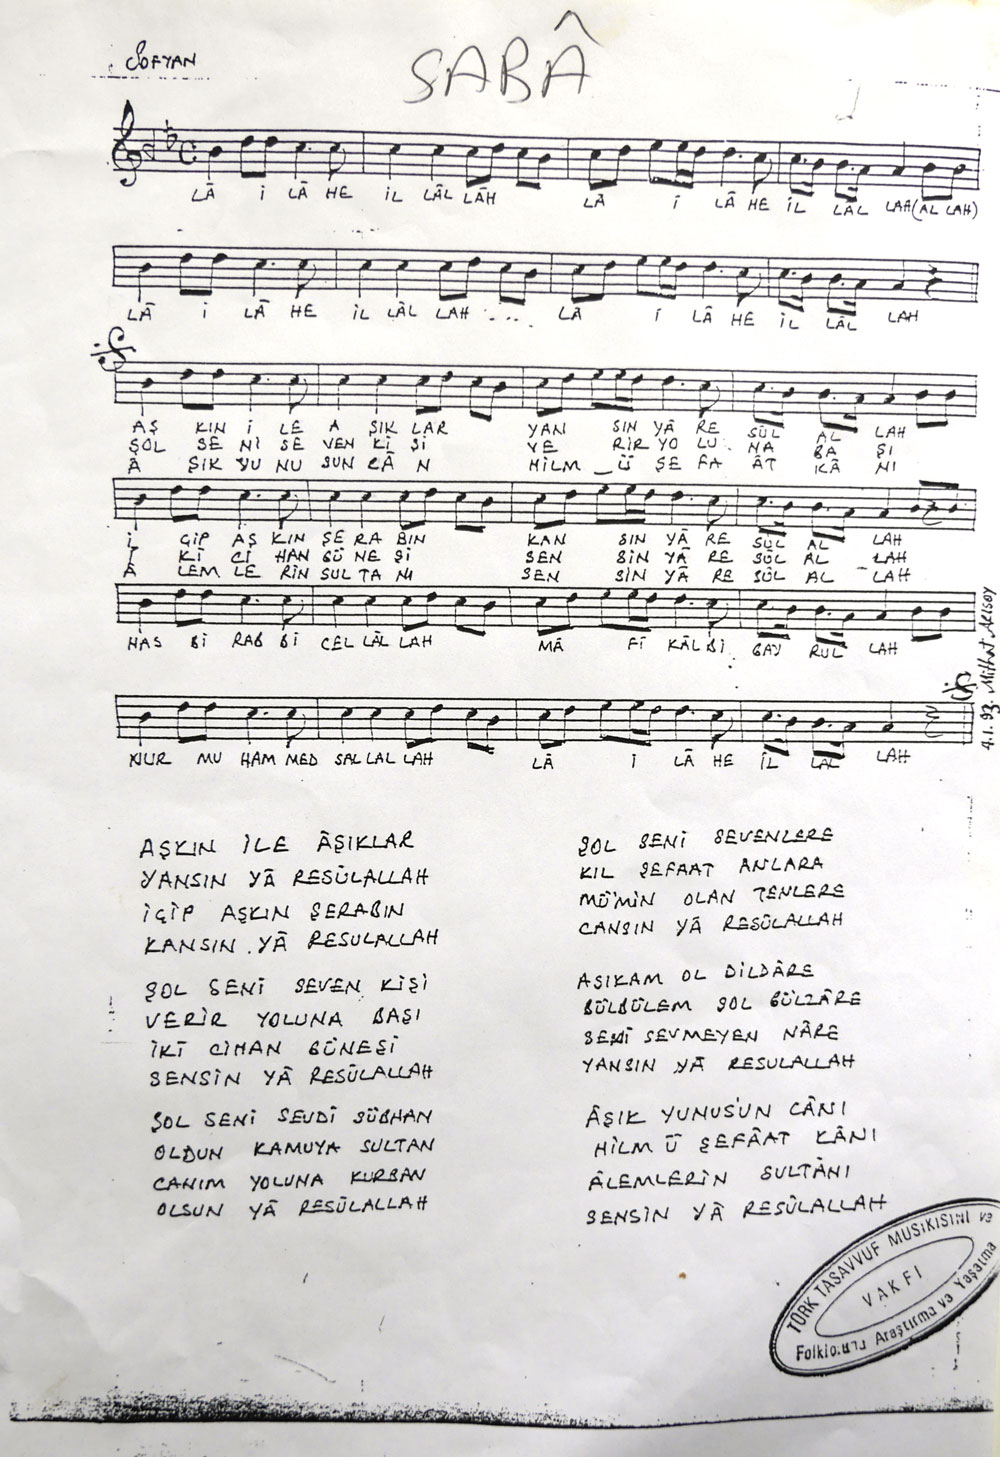 SOFYAN
SABÂ
LÂ İ LÂ HE İL LÂL LÂH LÂ İ LÂ HE İL LÂL LAH (AL LAH)
LÂ İ LÂ HE İL LÂL LAH .... LÂ İ LÂ HE İL LÂL LAH
AŞ KIN İ LE A ŞIK LAR YAN SIN YÂ RE SÛL AL LAH
ŞOL SE Nİ SE VEN Kİ Şİ VE RİR YO LU NA BA ŞI
Â ŞIK YU NU SUN CÂ N HİLM _ Ü ŞE FA ÂT KÂ NI
İ ÇİP AŞ KIN ŞE RA BIN KAN SIN YÂ RE SÛL AL LAH
İ Kİ Cİ HAN GÜ NE Şİ SEN SİN YÂ RE SÛL AL LAH
Â LEM LE RİN SUL TA NI SEN SİN YÂ RE SÛL AL LAH
HAS Bİ RAB Bİ CEL LÂL LAH MÂ Fİ KAL Bİ GAY RUL LAH
NUR MU HAM MED SAL LAL LAH LÂ İ LÂ HE İL LAL LAH
4.1.93. Mithat Aksoy
AŞKIN İLE ÂŞIKLAR
YANSIN YÂ RESÛLALLAH
İÇİP AŞKIN ŞERABIN
KANSIN YÂ RESULALLAH
ŞOL SENİ SEVEN KİŞİ
VERİR YOLUNA BAŞI
İKİ CİHAN GÜNEŞİ
SENSİN YÂ RESÛLALLAH
ŞOL SENİ SEVDİ SÜBHAN
OLDUN KAMUYA SULTAN
CANIM YOLUNA KURBAN
OLSUN YÂ RESÛLALLAH
ŞOL SENİ SEVENLERE
KIL ŞEFAAT ANLARA
MÜ'MİN OLAN TENLERE
CANSIN YÂ RESÛLALLAH
AŞIKAM OL DİLDÂRE
BÜLBÜLEM ŞOL GÜLZÂRE
SENİ SEVMEYEN NÂRE
YANSIN YÂ RESULALLAH
ÂŞIK YUNUS'UN CÂNI
HİLM Ü ŞEFÂAT KÂNI
ÂLEMLERİN SULTÂNI
SENSİN YÂ RESÛLALLAH
TÜRK TASAVVUF MUSİKİSİNİ ve
Araştırma ve Yaşatma
VAKFI